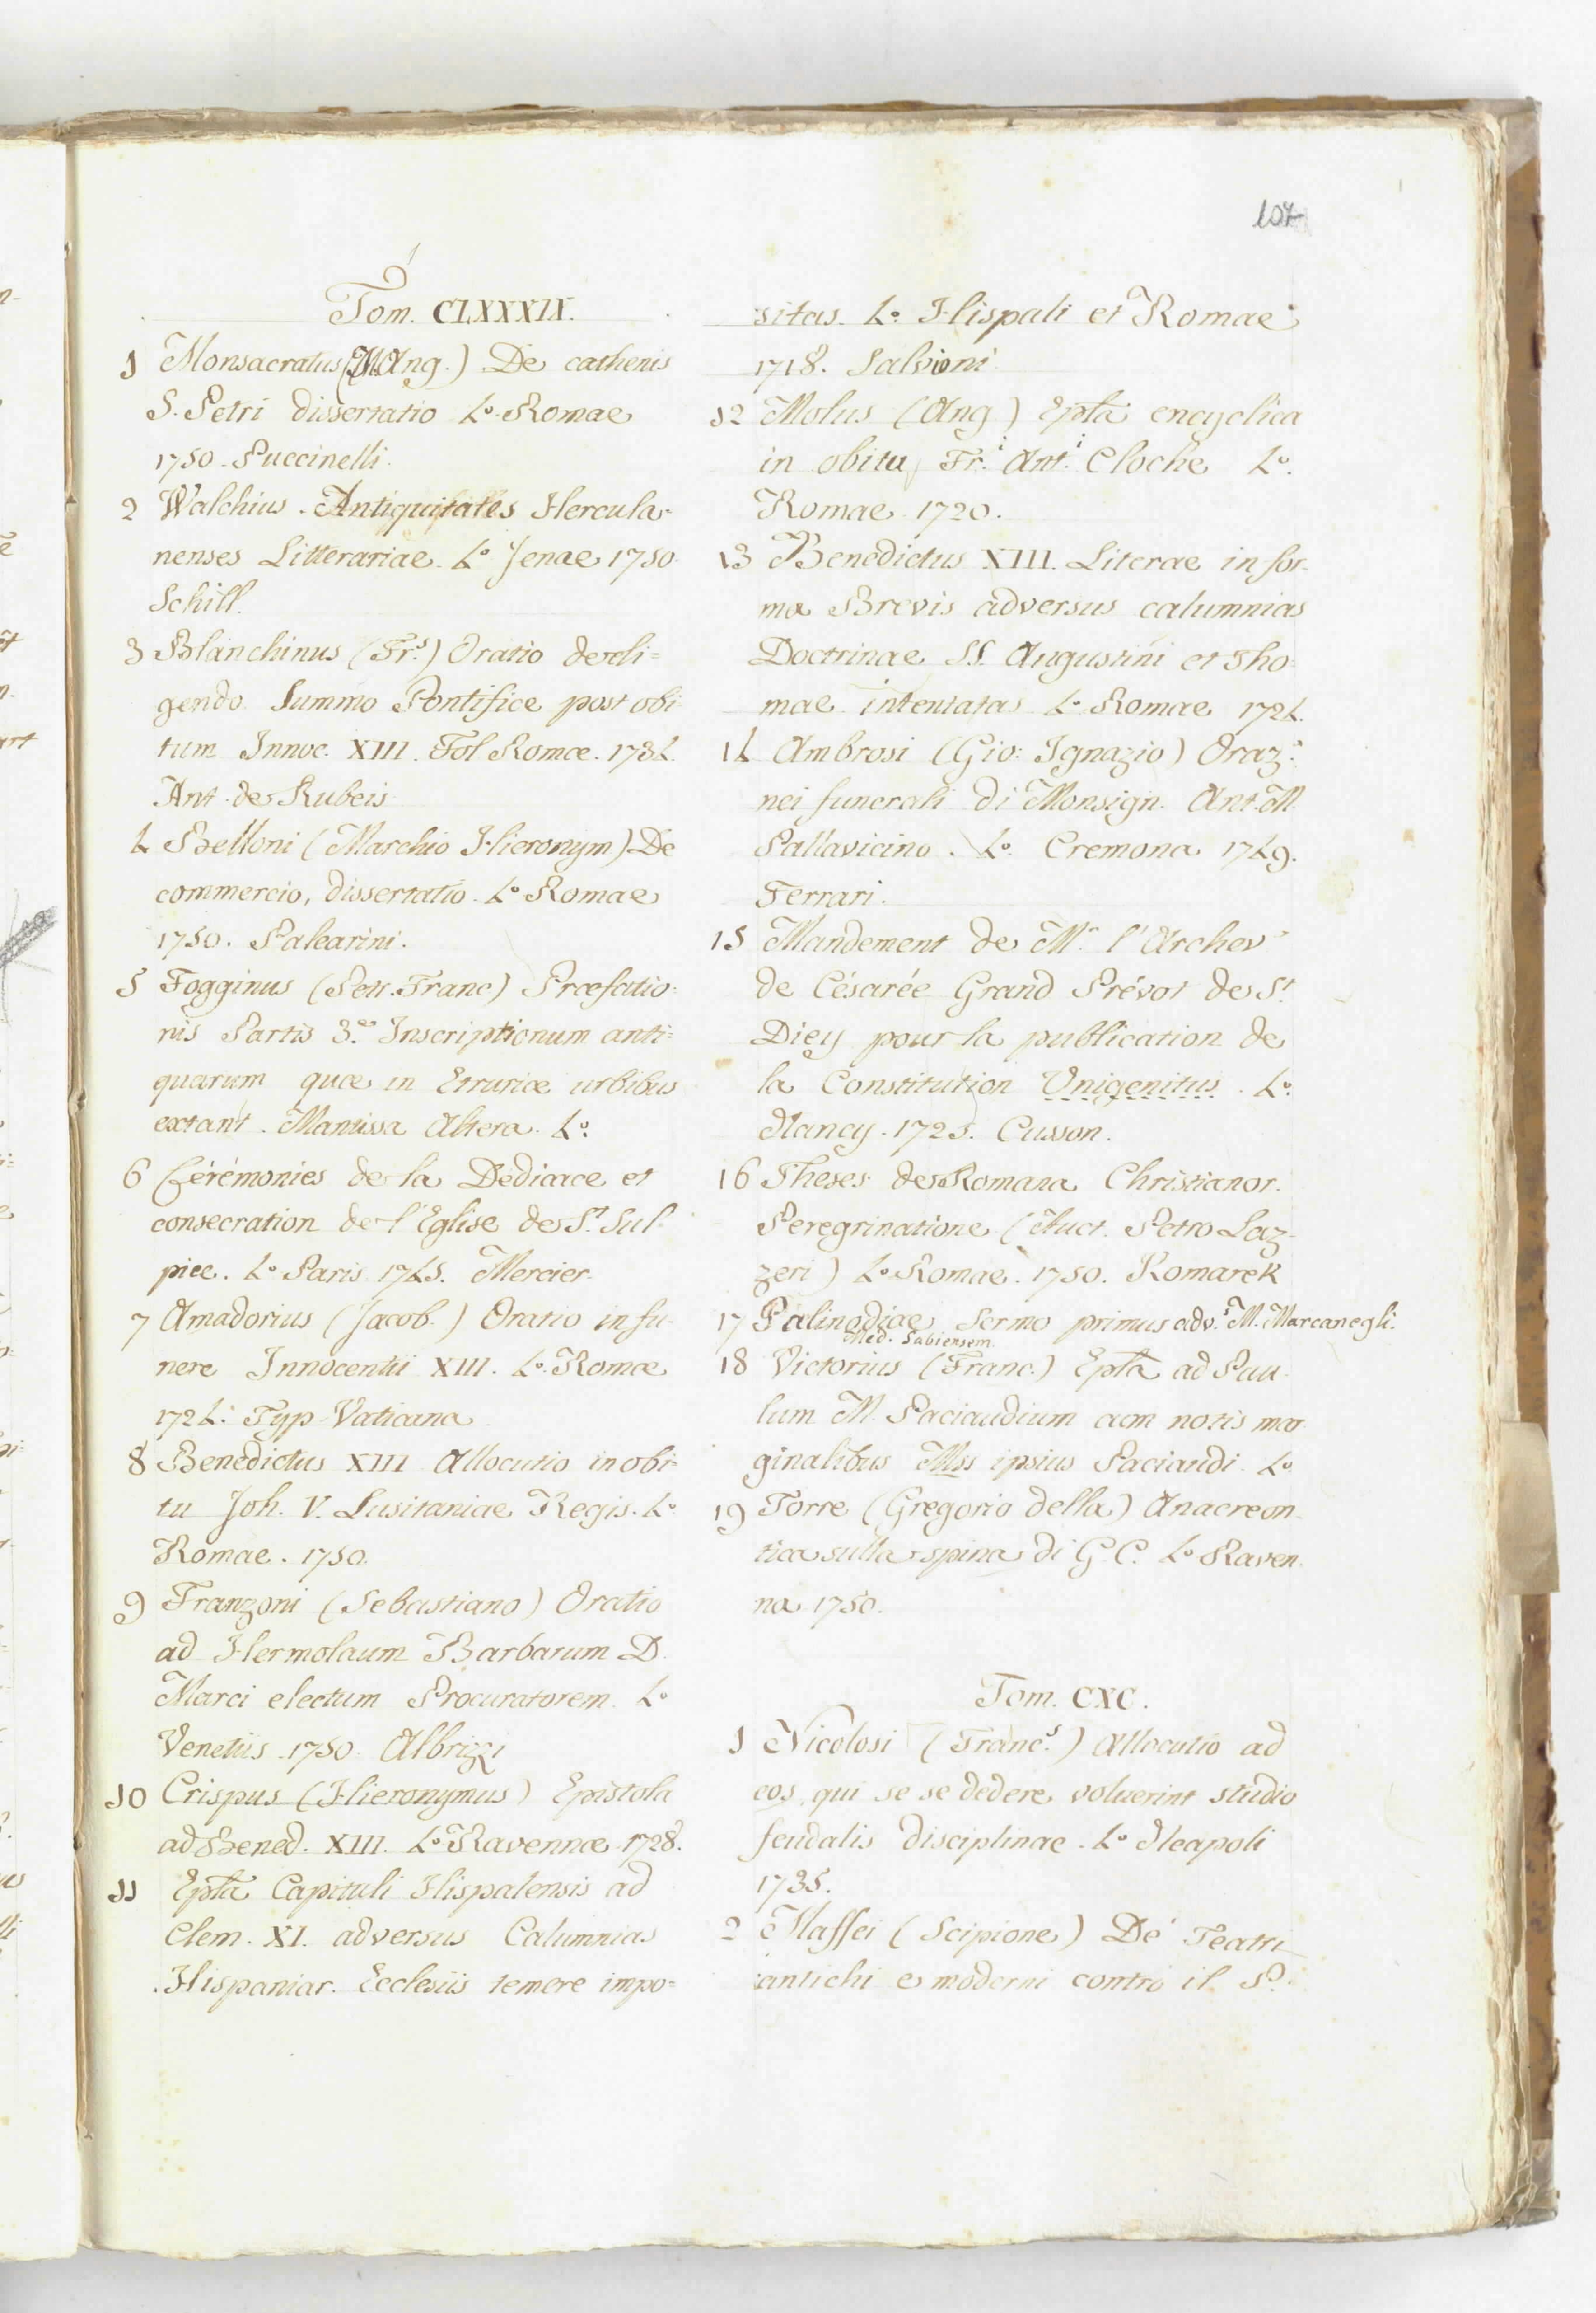 107
Tom. CLXXXIX.
1 Monsacratus (M. Ang.) De cathenis
S. Petri dissertatio 4.o Romae
1750. Puccinelli.
2 Walchius. Antiquitates Hercula-
nenses Litterariae. 4.o Jenae 1750.
Schill.
3 Blanchinus (Fr.s) Oratio de eli=
gendo Summo Pontifice post obi
tum Innoc. XIII. Fol Romæ. 1734.
Ant. de Rubeis
4 Belloni (Marchio Hieronym) De
commercio, dissertatio. 4.o Romae
1750. Palearini.
5 Fogginus (Petr. Franc) Præfatio=
nis Partis 3.ae Inscriptionum anti=
quarum quæ in Etruriæ urbibus
extant. Mantissa Altera. 4.o
6 Cérémonies de la Dédicace et
consecration de l'Eglise de S.t Sul
pice. 4.o Paris 1745. Mercier.
7 Amadorius (Jacob.) Oratio in fu
nere Innocentii XIII. 4.o Romæ
1724. Typ Vaticana
8 Benedictus XIII Allocutio in obi=
tu Joh. V. Lusitaniae Regis. 4.o
Romae. 1750.
9 Franzoni (Sebastiano) Oratio
ad Hermolaum Barbarum D.
Marci electum Procuratorem. 4.o
Venetiis. 1750. Albrizzi
10 Crispus (Hieronymus) Epistola
ad Bened. XIII. 4.o Ravennæ 1728.
11 Epla Capituli Hispalensis ad
Clem. XI. adversus Calumnias
Hispaniar. Ecclesiis temere impo=
sitas. 4.o Hispali et Romae
1718. Salvioni
12 Molus (Ang) Epla encyclica
in obitu Fr.i Ant.i Cloche 4.o
Romae 1720.
13 Benedictus XIII. Literae in for-
ma Brevis adversus calumnias
Doctrinae SS. Augustini et Tho=
mae intentatas 4.o Romae 1724.
14 Ambrosi (Gio: Ignazio) Oraz.e
nei funerali di Monsign. Ant. M.
Pallavicino. 4.o Cremona 1749.
Ferrari.
15 Mandement de M.r l'Archev.e
de Césarée Grand Prévot de S.t
Diey pour la publication de
la Constitution Unigenitus. 4.o
Nancy. 1725. Cusson.
16 Theses de Romana Christianor.
Peregrinatione (Auct. Petro Laz-
zeri) 4.o Romae. 1750. Komarek
17 Palinodiae Sermo primus adv.s M. Marcanegli.
Med. Sabiensem.
18 Victorius (Franc.) Epla ad Pau
lum M. Paciaudium cum notis mar
ginalibus Mss ipsius Paciaudi. 4.o
19 Torre (Gregorio della) Anacreon-
tica sulla spina di G. C. 4.o Raven
na 1750.
Tom. CXC.
1 Nicolosi (Franc.s) Allocutio ad
eos, qui se se dedere voluerint studio
feudalis disciplinae. 4.o Neapoli
1735.
2 Maffei (Scipione) De' Teatri
antichi e moderni contro il P.